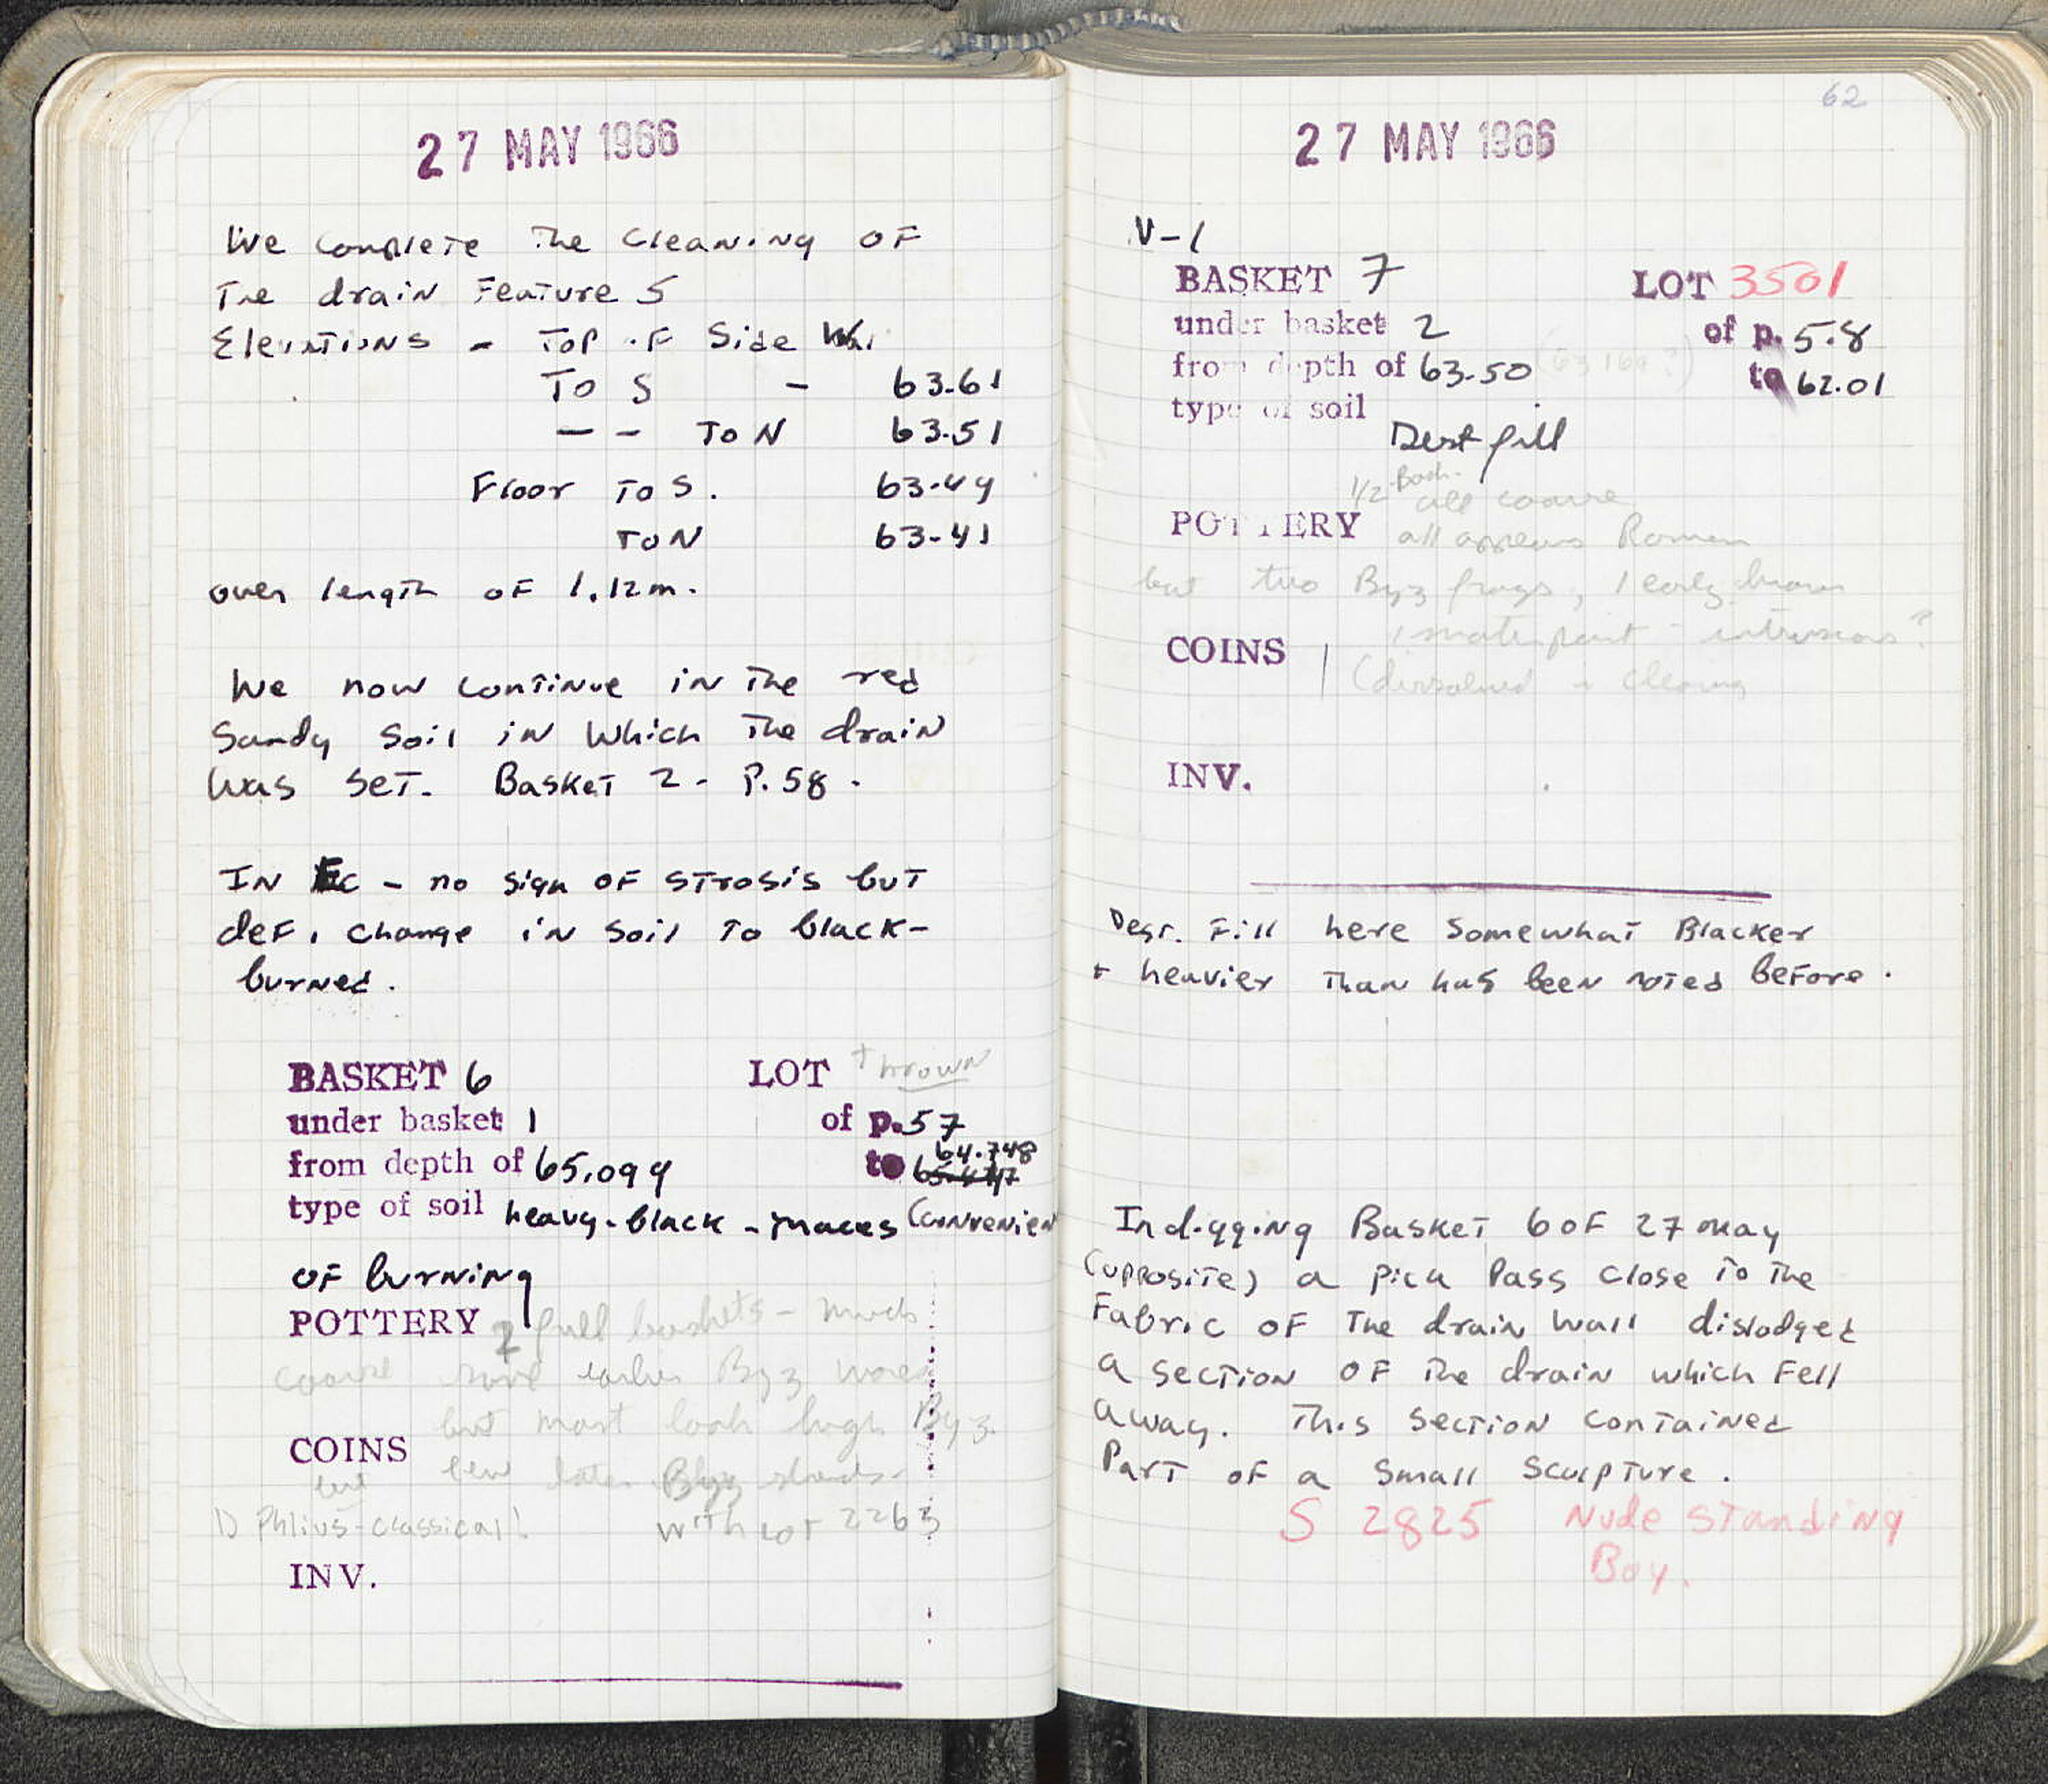 27 MAY 1966
We complete the cleaning of
The drain Feature S
Elevations - Top of Side Wal
To S - 63.61
— — To N 63.51
Floor To S. 63.49
To N 63.41
over length of 1.12m.
We now continue in the red
Sandy Soil in which the drain
was set. Basket 2 - P. 58.
In - no sign of strosis but
def. change in soil to black-
burned.
BASKET 6 LOT + thrown
under basket 1 of p. 57
64.748
from depth of 65.099 to
type of soil heavy-black - traces (Convenien
of burning
POTTERY 2 full baskets - much
coarse some earlier Byz wares
but most look high Byz.
COINS
but few later Byz sherds
1) Phlius-classical! with Lot 2263
INV.
62
27 MAY 1966
N-1
BASKET 7 LOT 3501
under basket 2 of p. 58
from depth of 63.50 to 62.01
type of soil
Dest fill
1/2 Bask.
all coarse
POTTERY all appears Roman
but two Byz frags, 1 early brown
intrusions?
COINS 1 (dissolved in cleaning
INV.
Dest. Fill here somewhat Blacker
+ heavier than has been noted before.
In digging Basket 6 of 27 may
(opposite) a pick pass close to the
Fabric of the drain wall dislodged
a section of the drain which fell
away. This section contained
Part of a small sculpture.
S 2825 Nude Standing
Boy.